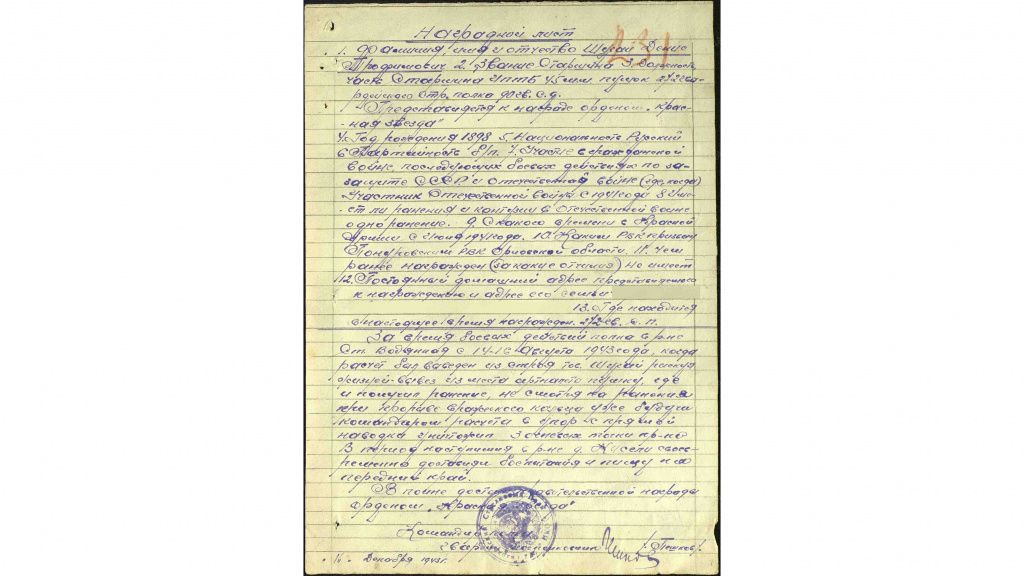 Наградной лист
231
1. Фамилия, имя и отчество Шурай Денис
Трофимович 2. Звание Старшина 3. Должность,
часть Старшина ПТБ 45 мм пушок 272 гва-
рдейского Стр. полка 90 гв. с.д.
Представляется к награде орденом „Крас-
ная звезда"
4. Год рождения 1898 5. Национальность Русский
6 Партийность б/п. 7. Участие в гражданской
войне, последующих боевых действиях по за-
защите СССР и отечественной войне (где, когда)
Участник Отечественной войны с 1941 года 8 Име-
ет ли ранения и контузии в Отечественной войне
одно ранение. 9. С какого времени в Красной
Армии С июля 1941 года. 10. Каким РВК призван
РВК Орловской области. 11. Чем
ранее награжден (за какие отличия) не имеет
12. Постоянный домашний адрес представляемого
к награждению и адрес его семьи
13. Где находится
в настоящее время награжден. 272 гв. с. п.
За время боевых действий полка в р-не
Ст. Водяная с 14-16 августа 1943 года, когда
расчет был выведен из строя тов. Шурай рискуя
жизней вывез из места пушку, где
и получил ранение, не смотря на ранение
при прорыве вражеского кольца уже будучи
командиром расчета в упор и прямой
наводкой уничтожил 3 огневых точки пр-ка
В период наступления в р-не д. свое-
временно доставлял боепитание и пищу на
передний край.
В полне достоин правительственной награды
орденом „Красная звезда"
Командир полка
Гвардии подполковник /Пешков/
Декабря 1943 г.